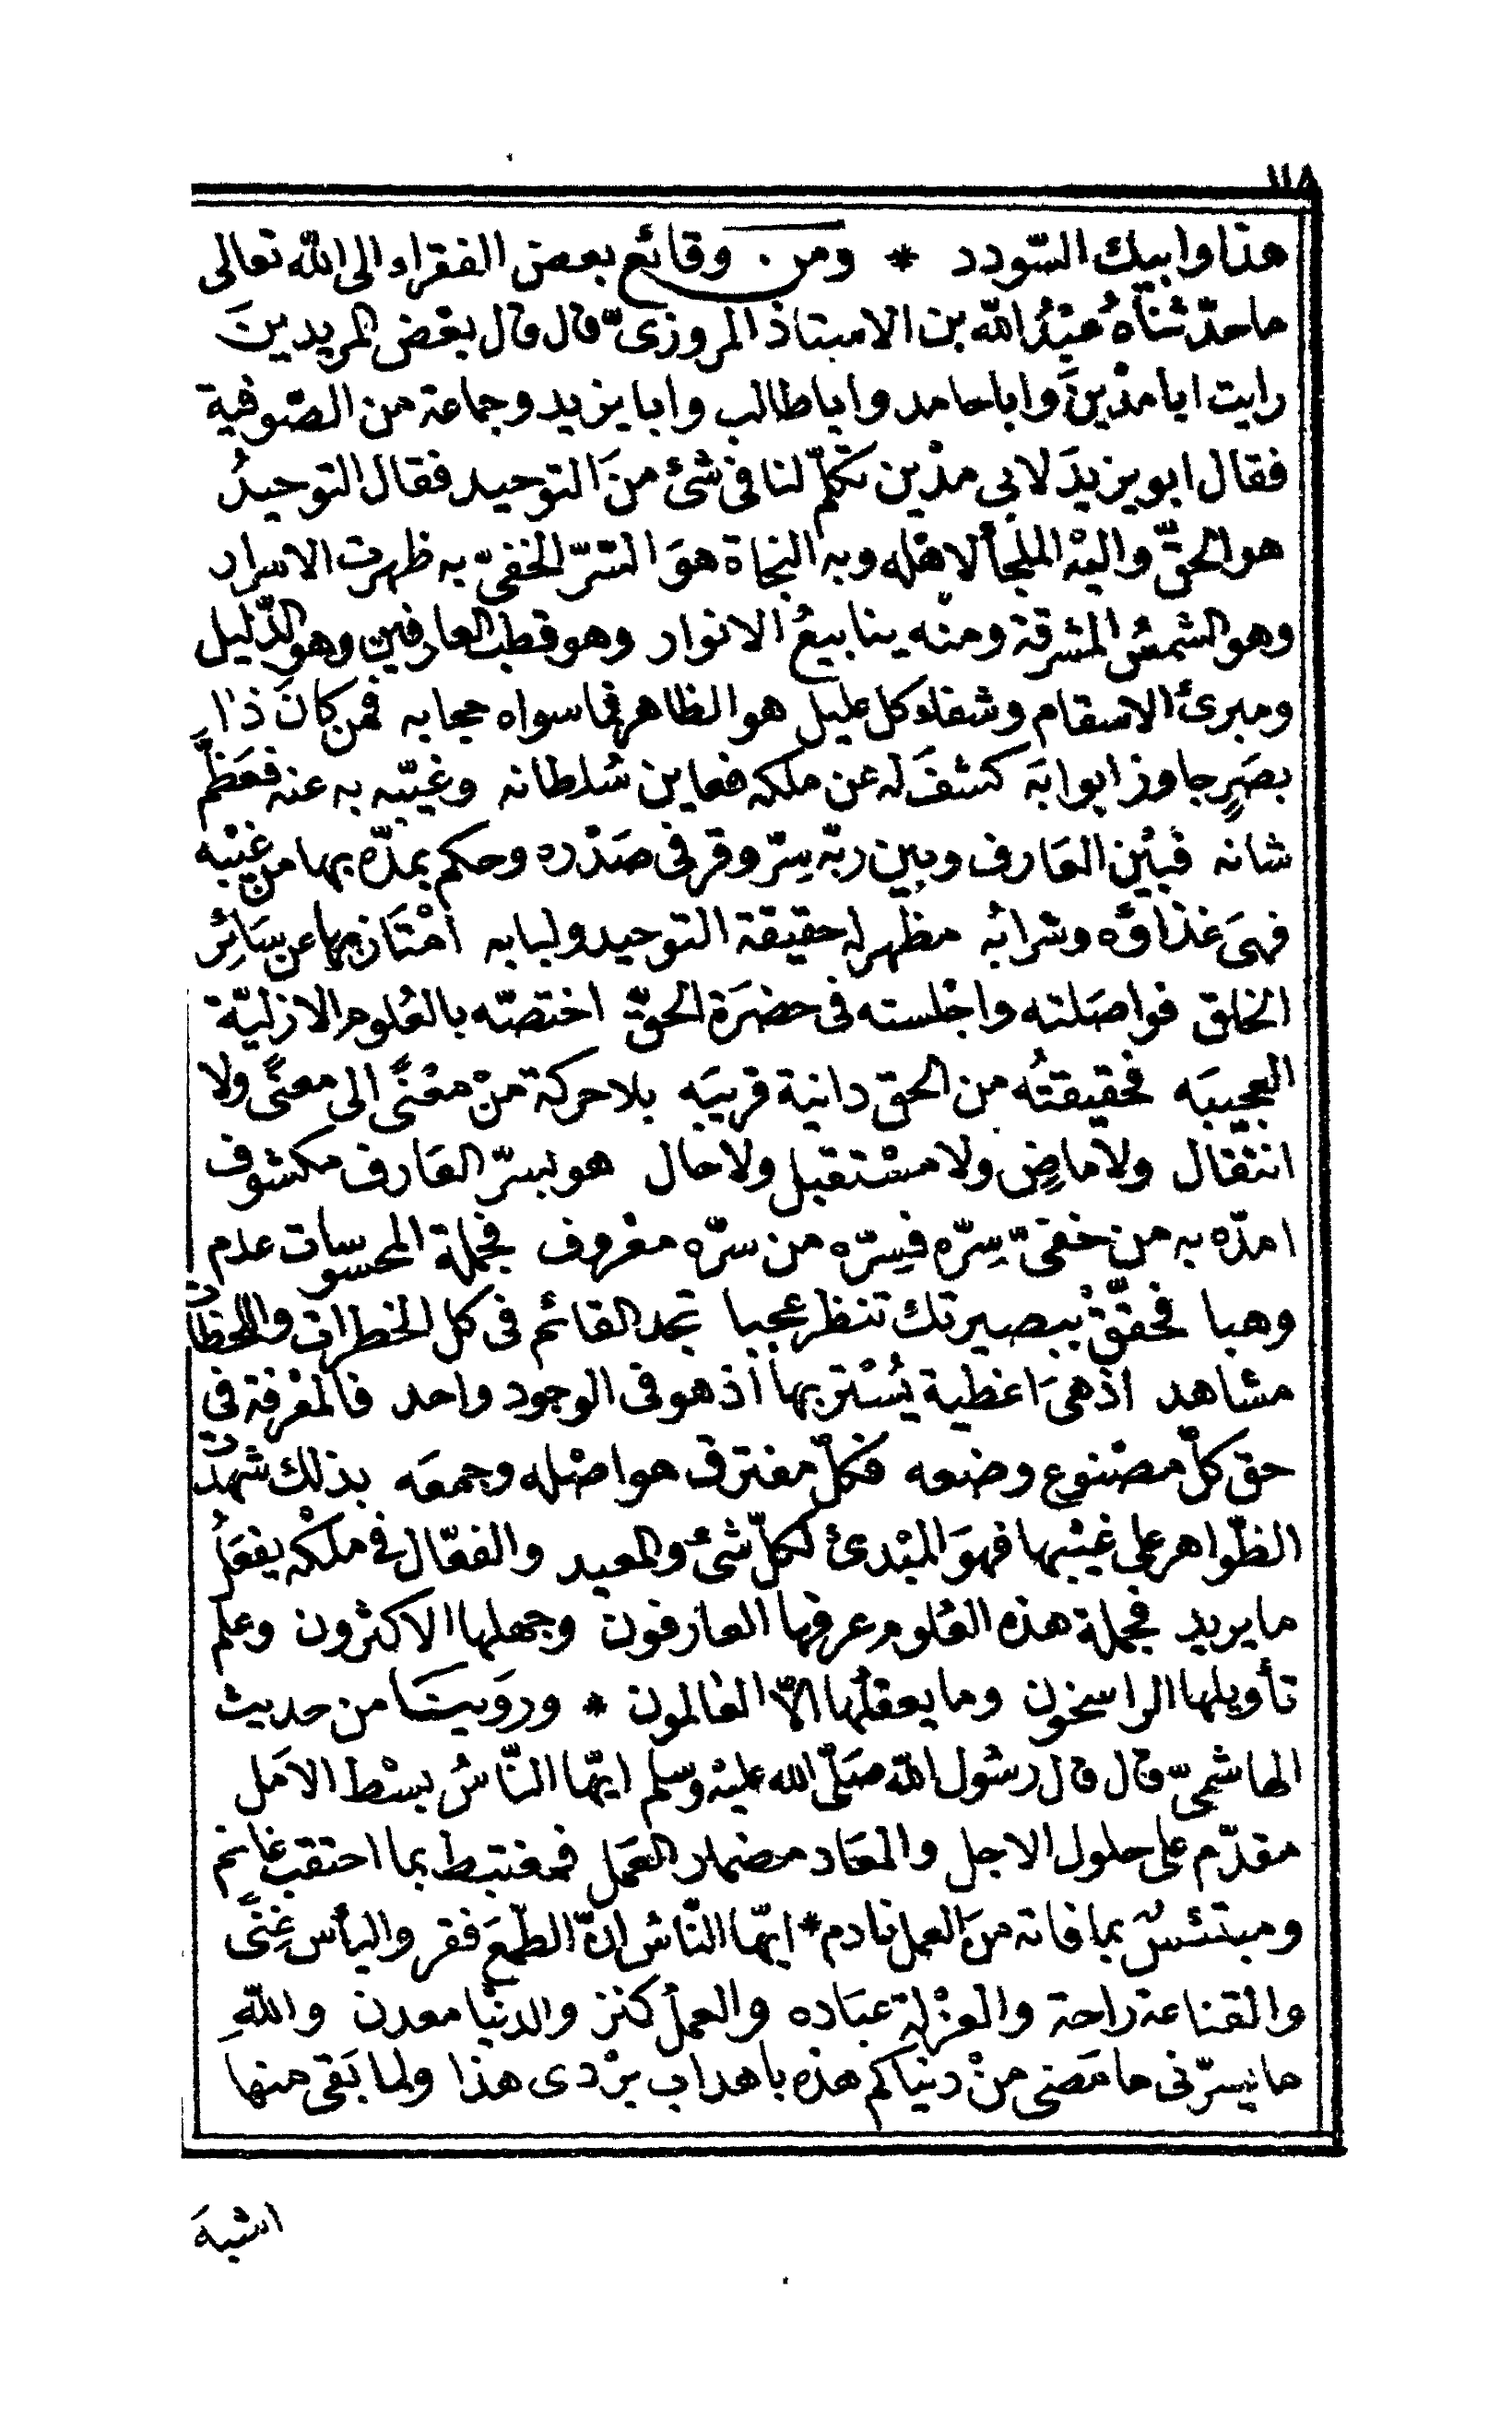 ١١٨
هذا وابيك السّودد * ومن وقائع بعض الفقراء الى الله تعالى
ما حدّثناهُ عبْدُ الله بن الاستاذ المروزىّ قال قال بعْض المريدينَ
رايت ابا مدْينَ وابا حامد وابا طالب وابا يزيد وجماعة من الصّوفية
فقال ابو يزيدَ لابي مدْين تكلّم لنا فى شئ منَ التوحيد فقال التوحيدُ
هو الحقّ واليْه الملجأ لاهْله وبه النجاة هوَ السّرّ الخفىّ به ظهرت الاسرار
وهو الشمسُ المشرقة ومنْه ينابيعُ الانوار وهو قطب العارفين وهو الدّليل
ومبرئ الاسقام وشفاء كل عليل هو الظاهر فما سواه حجابه فمن كانَ ذا
بصَرٍ جاوز ابوابَه كشفَ له عن ملكه فعاين سُلطانه وغيّبه به عنه فعَظّمَ
شانه فبيْن العَارف وبين ربّه سِرّ وقر فى صَدْره وحكم يمدّه بها من غيْبه
فهىَ غذاؤه وشرابُه مظهر له حقيقة التوحيد ولبابه امْتَاز بها عن سَائِر
الخلق فواصَلته واجْلسته فى حضرَة الحقّ اختصّه بالعُلوم الازليّة
العجيبَه فحقيقتُه من الحق دانية قريبَه بلا حركة منْ معْنًى الى معنًى ولا
انتقال ولا ماضٍ ولا مسْتقبل ولا حال هو لسرّ العَارف مكشوف
امدّه به من خفىّ سِرّه فسِرّه من سرّه معْروف فجملة المحسوسات عدم
وهبا فحقّقْ ببصيرتك تنظر عجبا تجد القائم فى كل الخطرات واللحظات
مشاهد اذ هىَ اغطية يُسْتر بها اذ هو فى الوجود واحد فالمعْرفة فى
حق كلّ مصْنوع وضعه فكلّ مفترق هو اصْله وجمعَه بذلك شهدت
الظّواهر على غيْبها فهوَ المبْدئ لكلّ شئ والمعيد والفعّال فى ملكْه يفعَلُ
ما يريد فجملة هذه العُلوم عرفها العارفون وجهلها الاكثرون وعلم
تأويلها الراسخون وما يعقلُها الاّ العالمون * وروَينَا من حديث
الهاشمىّ قال قال رسُول الله صَلّى الله عليْه وسلم ايّها النّاسُ بسْط الامَل
مقدّم على حلول الاجل والمعَاد مضمار العَمل فمغتبط بما احتقب غانم
ومبتئسٌ بما فاته منَ العمل نادم * ايّها النّاسُ انّ الطّمعَ فقر واليأس غِنًى
والقناعة راحة والعزْلة عبَاده والعملُ كنز والدنْيا معدن واللهِ
ما يسرّنى ما مَضى منْ دنياكم هذه باهداب بُرْدى هذا ولما بَقى منها
اشبهَ